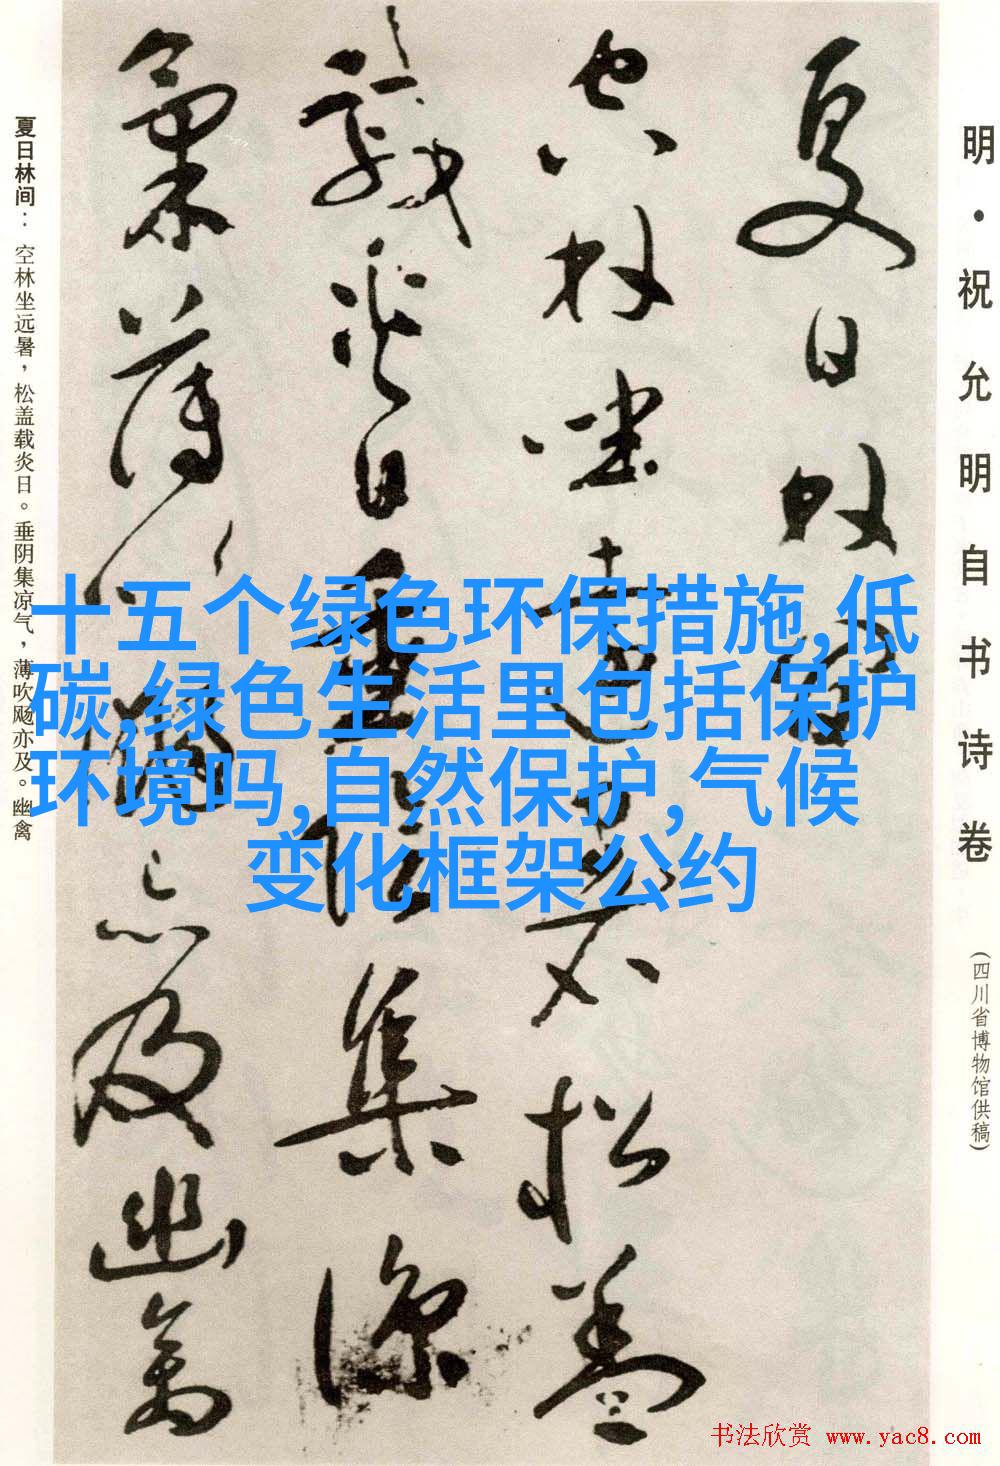 明·祝允明自书诗卷
(四川省博物馆供稿)
夏日林间
空林坐遠暑松盖
載炎日垂陰集涼
氣薄吹飏亦及幽禽
夏日林间：空林坐远暑，松盖载炎日。垂阴集凉气，薄吹飏亦及。幽禽
十五个绿色环保措施,低
碳,绿色生活里包括保护
环境吗,自然保护,气候
变化框架公约
书法欣赏 www.yac8.com